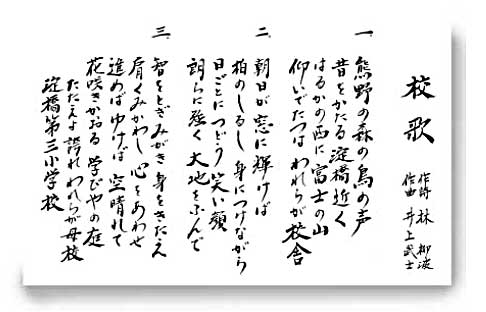 校歌
作詩 林 柳波
作曲 井上武士
一、
熊野の森の鳥の声
昔をかたる淀橋近く
はるかの西に富士の山
仰いでたつは われらが校舎
二、
朝日が窓に輝けば
柏のしるし 身につけながら
日ごとにつどう 笑い顔
朗らに強く 大地をふんで
三、
智をとぎみがき 身をきたえ
肩くみかわし 心をあわせ
進めばゆけば 空晴れて
花咲きかおる 学びやの庭
たたえよ誇れ われらが母校
淀橋第三小学校